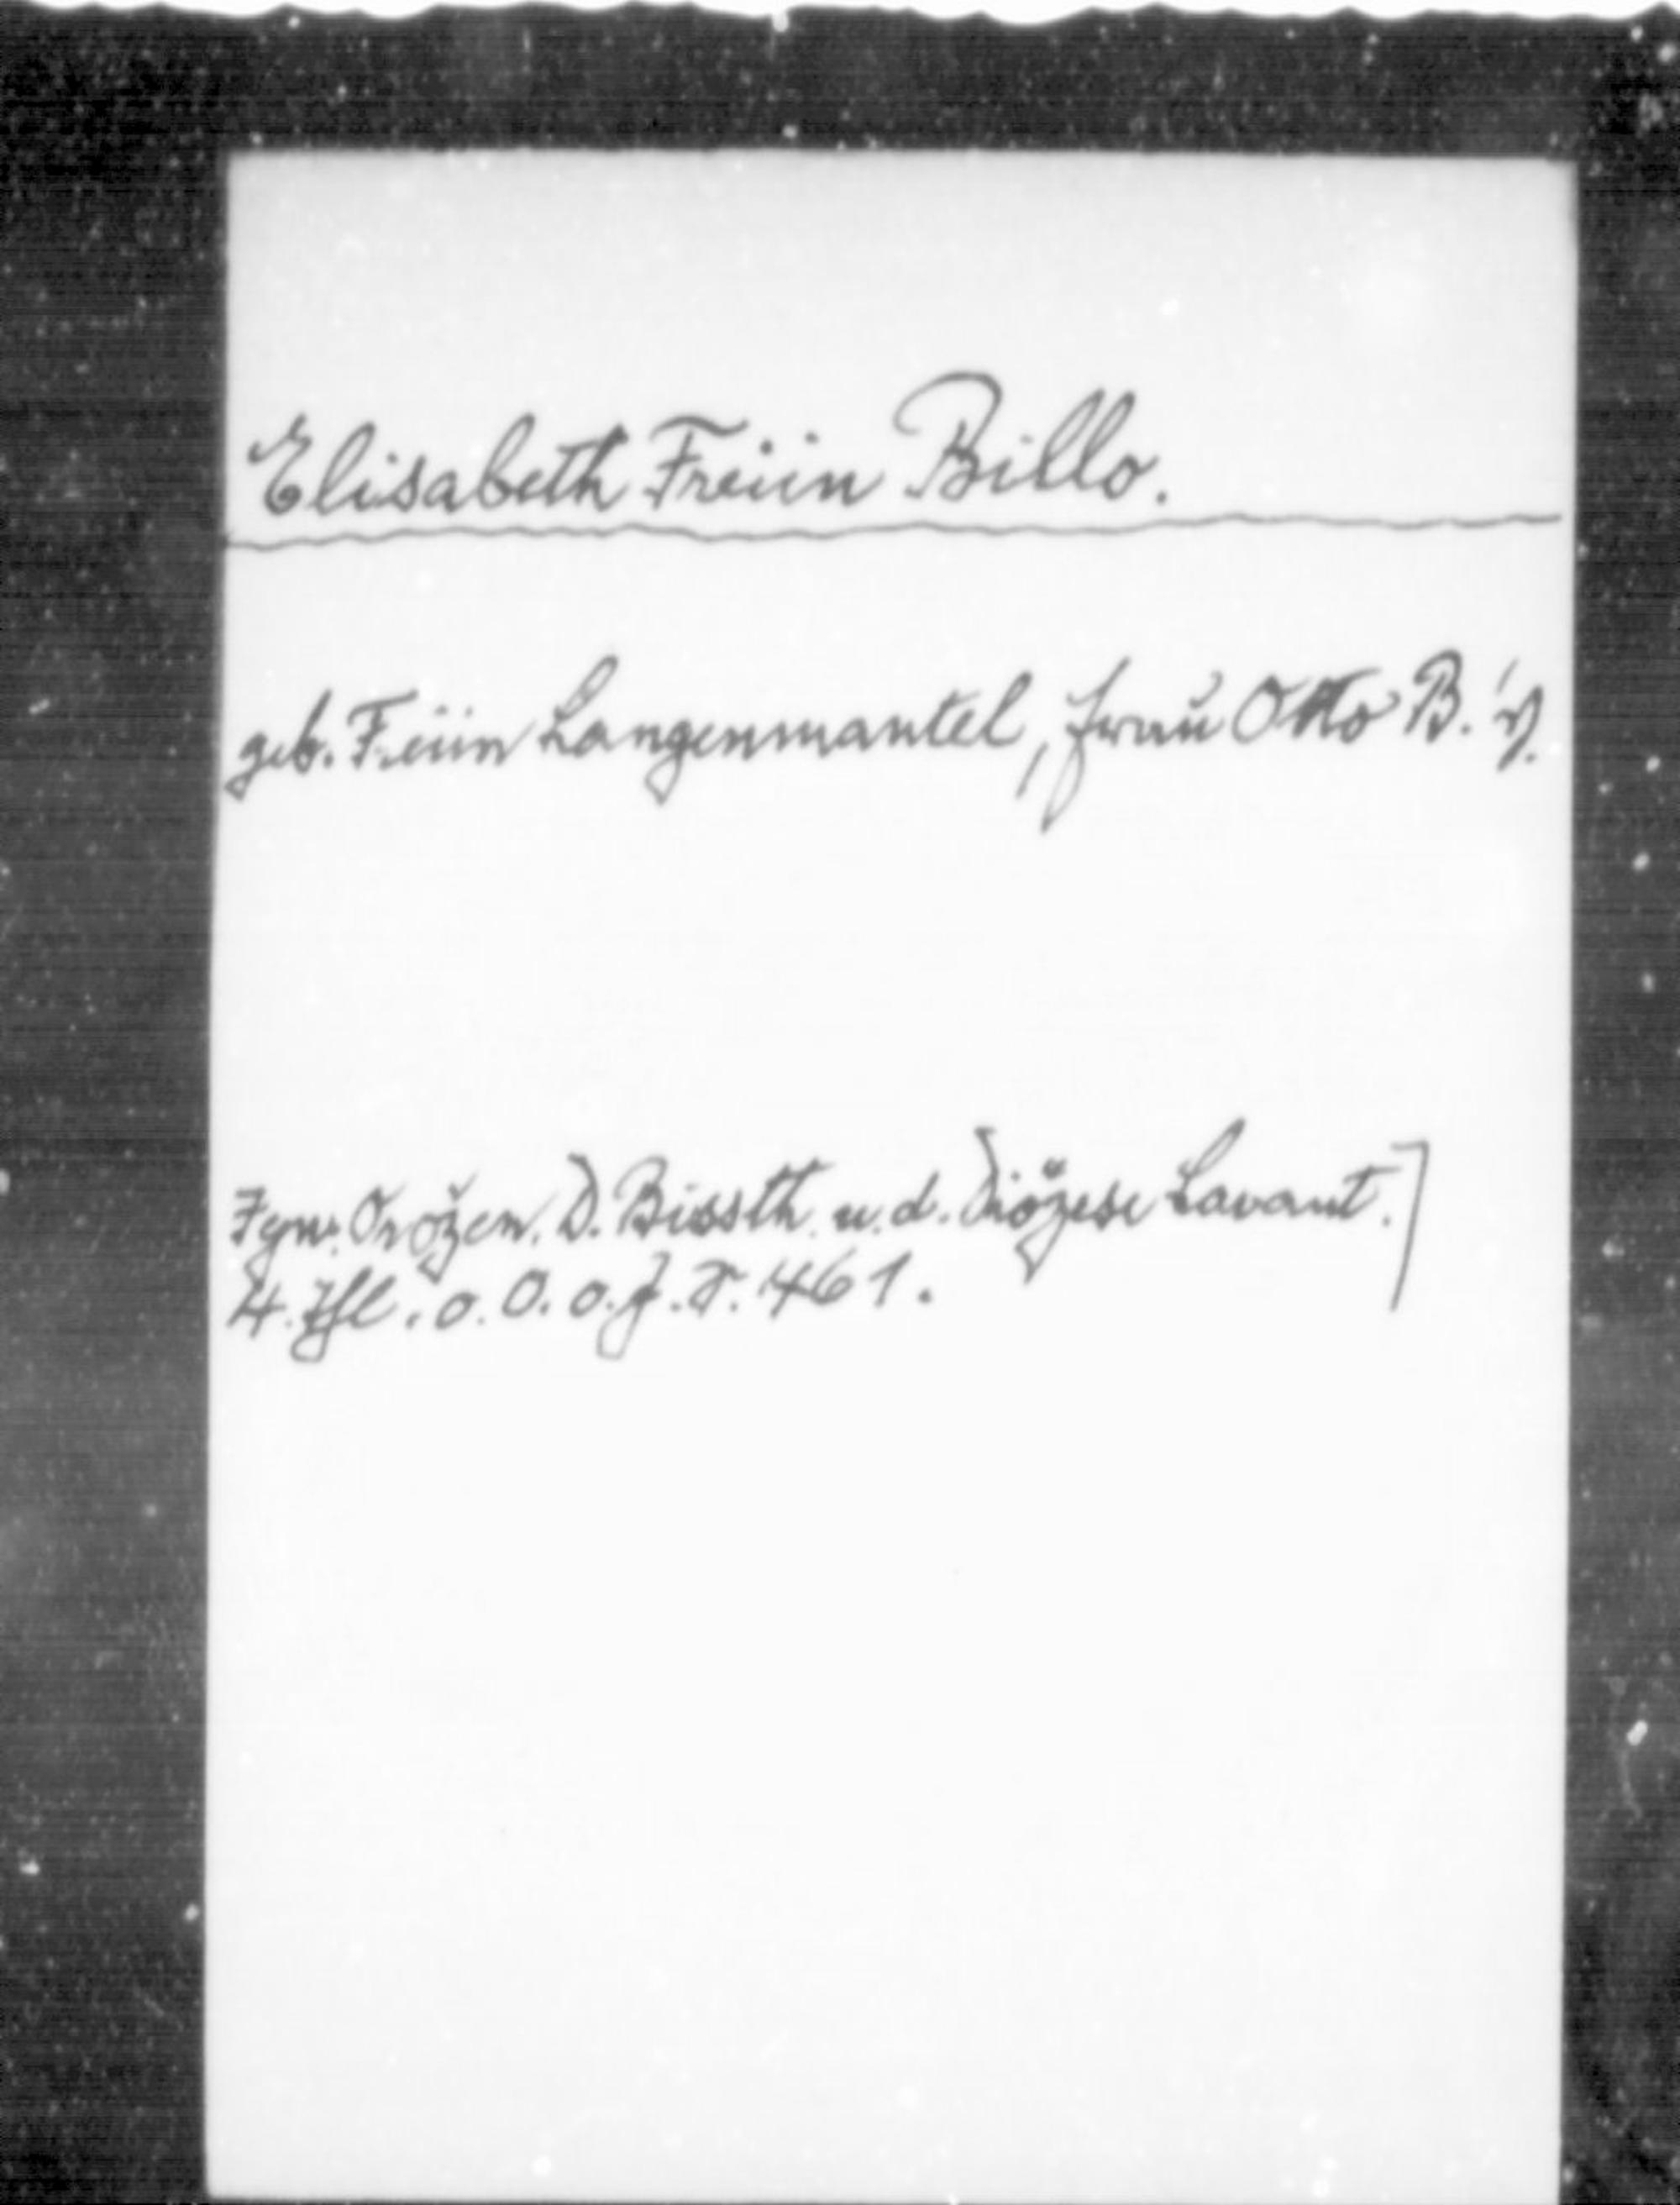 Elisabeth Freiin Billo.
geb. Freiin Langenmantel, Frau Otto B.'s.
Ign. Orožen. D. Bissth. u. d. Diözese Lavant.]
4. Thl. o. O. o. J. S. 461.